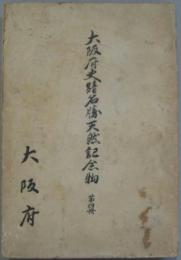 大阪府史蹟名勝天然記念物 第四冊
大阪府